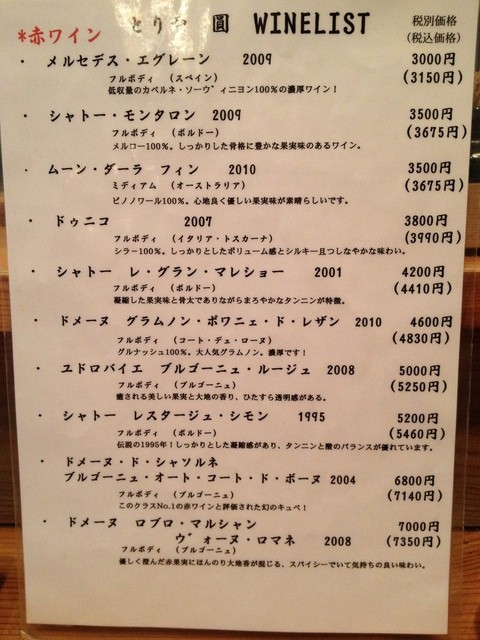 とりや 圓 WINELIST
税別価格
(税込価格)
*赤ワイン
・ メルセデス・エグレーン 2009 3000円
フルボディ (スペイン) (3150円)
低収量のカベルネ・ソーヴィニヨン100%の濃厚ワイン!
・ シャトー・モンタロン 2009 3500円
フルボディ (ボルドー) (3675円)
メルロー100%。しっかりした骨格に豊かな果実味のあるワイン。
・ ムーン・ダーラ フィン 2010 3500円
ミディアム (オーストラリア) (3675円)
ピノノワール100%。心地良く優しい果実味が素晴らしいです。
・ ドゥニコ 2007 3800円
フルボディ (イタリア・トスカーナ) (3990円)
シラー100%。しっかりとしたボリューム感とシルキー且つしなやかな味わい。
・ シャトー レ・グラン・マレショー 2001 4200円
フルボディ (ボルドー) (4410円)
凝縮した果実味と骨太でありながらまろやかなタンニンが特徴。
・ ドメーヌ グラムノン・ポワニェ・ド・レザン 2010 4600円
フルボディ (コート・デュ・ローヌ) (4830円)
グルナッシュ100%。大人気グラムノン。濃厚です!
・ ユドロバイエ ブルゴーニュ・ルージュ 2008 5000円
フルボディ (ブルゴーニュ) (5250円)
癒される美しい果実と大地の香り、ひたすら透明感がある。
・ シャトー レスタージュ・シモン 1995 5200円
フルボディ (ボルドー) (5460円)
伝説の1995年!しっかりとした凝縮感があり、タンニンと酸のバランスが優れています。
・ ドメーヌ・ド・シャソルネ
ブルゴーニュ・オート・コート・ド・ボーヌ 2004 6800円
フルボディ (ブルゴーニュ) (7140円)
このクラスNo.1の赤ワインと評価された幻のキュベ!
・ ドメーヌ ロブロ・マルシャン 7000円
ヴォーヌ・ロマネ 2008 (7350円)
フルボディ (ブルゴーニュ)
優しく澄んだ赤果実にほんのり大地香が混じる、スパイシーでいて気持ちの良い味わい。